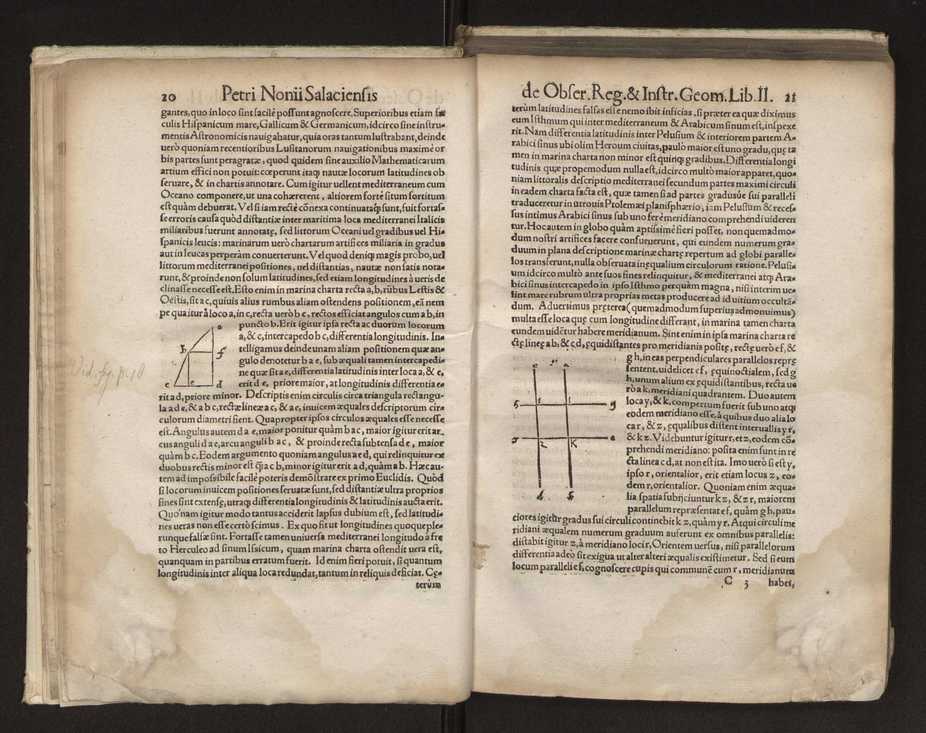 20 Petri Nonii Salaciensis
gantes, quo in loco sint facile possunt agnoscere. Superioribus etiam sæ
culis Hispanicum mare, Gallicum & Germanicum, idcirco sine instru-
mentis Astronomicis nauigabatur, quia oras tantum lustrabant, deinde
uerò quoniam recentioribus Lusitanorum nauigationibus maximè or
bis partes sunt peragratæ, quod quidem sine auxilio Mathematicarum
artium effici non potuit: cœperunt itaq; nautæ locorum latitudines ob
seruare, & in chartis annotare. Cum igitur uellent mediterraneum cum
Oceano componere, ut una cohærerent, altiorem fortè situm sortitum
est quàm debuerat. Vel si iam rectè cõnexa continuataq; sunt, fuit fortas-
se erroris causa quòd distantiæ inter maritima loca mediterranei Italicis
miliaribus fuerunt annotatę, sed littorum Oceani uel gradibus uel Hi-
spanicis leucis: marinarum uerò chartarum artifices miliaria in gradus
aut in leucas perperàm conuerterunt. Vel quod deniq; magis probo, uel
littorum mediterranei positiones, uel distantias, nautæ non satis nota-
runt, & proinde non solum latitudines, sed etiam longitudines à ueris de
clinasse necesse est. Esto enim in marina charta recta a, b, rũbus Lestis &
Oestis, sit a c, quiuis alius rumbus aliam ostendens positionem, eã nem
pe qua itur à loco a, in c, recta uerò b c, rectos efficiat angulos cum a b, in
puncto b. Erit igitur ipsa recta a c duorum locorum
a, & c, intercapedo b c, differentia longitudinis. In-
telligamus deinde unam aliam positionem quæ an-
gulo denotetur b a e, sub æquali tamen intercapedi-
ne quæ sit a e, differentia latitudinis inter loca a, & e,
erit d e, priore maior, at longitudinis differentia e-
rit a d, priore minor. Descriptis enim circulis circa triangula rectangu-
la a d e, & a b c, rectæ lineæ a c, & a e, inuicem æquales descriptorum cir-
culorum diametri sient. Quapropter ipsos circulos æquales esse necesse
est. Angulus autem d a e, maior ponitur quàm b a c, maior igitur erit ar-
cus anguli d a e, arcu anguli b a c, & proinde recta subtensa d e, maior
quàm b c. Eodem argumento quoniam angulus a e d, qui relinquitur ex
duobus rectis minor est q̃ a c b, minor igitur erit a d, quàm a b. Hæc au-
tem ad impossibile facilè poteris demõstrare ex primo Euclidis. Quòd
si locorum inuicem positiones seruatæ sunt, sed distantiæ ultra proprios
fines sint extensę, utraq; differentia longitudinis & latitudinis aucta erit.
Quónam igitur modo tantus acciderit lapsus dubium est, sed latitudi-
nes ueras non esse certò scimus. Ex quo fit ut longitudines quoque ple-
runque falsæ sint. Fortasse tamen uniuersa mediterranei longitudo à fre
to Herculeo ad sinum Issicum, quam marina charta ostendit uera est,
quanquam in partibus erratum fuerit. Id enim fieri potuit, si quantum
longitudinis inter aliqua loca redundas, tantum in reliquis deficiat. Cę-
terùm
a
b
f
c
e
d
de Obser. Reg. & Instr. Geom. Lib. II. 21
terùm latitudines falsas esse nemo ibit inficias, is præter ea quæ diximus
eum Isthmum qui inter mediterraneum & Arabicum sinum est, inspexe
rit. Nam differentia latitudinis inter Pelusium & interiorem partem A-
rabici sinus ubi olim Heroum ciuitas, paulò maior est uno gradu, quę ta
men in marina charta non minor est quinq; gradibus. Differentia longi
tudinis quæ propemodum nulla est, idcirco multò maior apparet, quo-
niam littoralis descriptio mediterranei secundum partes maximi circuli
in eadem charta facta est, quæ tamen si ad partes gradusúe sui paralleli
traduceretur in utrouis Ptolemæi planisphærio, iam Pelusium & reces-
sus intimus Arabici sinus sub uno ferè meridiano comprehendi uideren
tur. Hoc autem in globo quàm aptissimè fieri posset, non quemadmo-
dum nostri artifices facere consueuerunt, qui eundem numerum gra-
duum in plana descriptione marinæ chartę repertum ad globi paralle-
los transferunt, nulla obseruata inęqualium circulorum ratione. Pelusiũ
um idcirco multò ante suos fines relinquitur, & mediterranei atq; Ara-
bici sinus intercapedo in ipso Isthmo perquàm magna, nisi interim ue-
lint mare rubrum ultra proprias metas producere ad id uitium occultã-
dum. Aduersimus pręterea (quemadmodum superius admonuimus)
multa esse loca quę cum longitudine differant, in marina tamen charta
eundem uidẽtur habere meridianum. Sint enim in ipsa marina charta re
ctę lineę a b, & c d, ęquidistantes pro meridianis positę, rectę uerò e f, &
g h, in eas perpendiculares parallelos reprę
sentent, uidelicet e f, ęquinoctialem, sed g
h, unum alium ex ęquidistantibus, recta ue
rò a k, meridiani quadrantem. Duo autem
loca y, & k, compertum fuerit sub uno atq;
eodem meridiano esse, à quibus duo alia lo
ca r, & z, ęqualibus distent interuallis y r,
& k z. Videbuntur igitur r, et z, eodem cõ-
prehendi meridiano: posita enim sunt in re
cta linea c d, at non est ita. Imo uerò si est y,
ipso r, orientalior, erit etiam locus z, eo-
dem r, orientalior. Quoniam enim æqua-
lia spatia subijciuntur k z, & z r, maiorem
parallelum repræsentat e f, quàm g h, pau-
ciores igitur gradus sui circuli continebit k z, quàm y r. Atqui circuli me
ridiani æqualem numerum graduum auferunt ex omnibus parallelis:
distabit igitur z, à meridiano loci r, Orientem uersus, nisi parallelorum
differentia adeò sit exigua ut alter alteri æqualis existimetur. Sed si eum
locum paralleli e f, cognoscere cupis qui communẽ cum r, meridianum
C 3 habet,